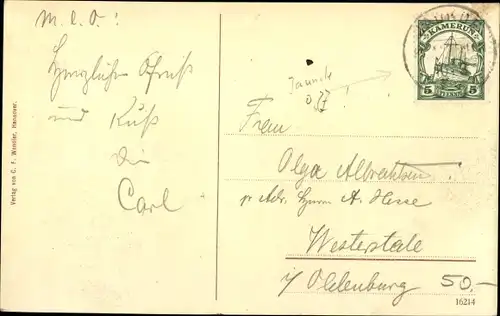 M. l. O.:
Herzlichen Gruß
und Kuß
Dein
Carl
Verlag von C. F. Wendler, Hannover.
KAMERUN
5 PFENNIG 5
Frau
Olga Albrahtsen
p. Adr. Herrn A. Hesse
Westerstede
i/ Oldenburg
50.-
16214